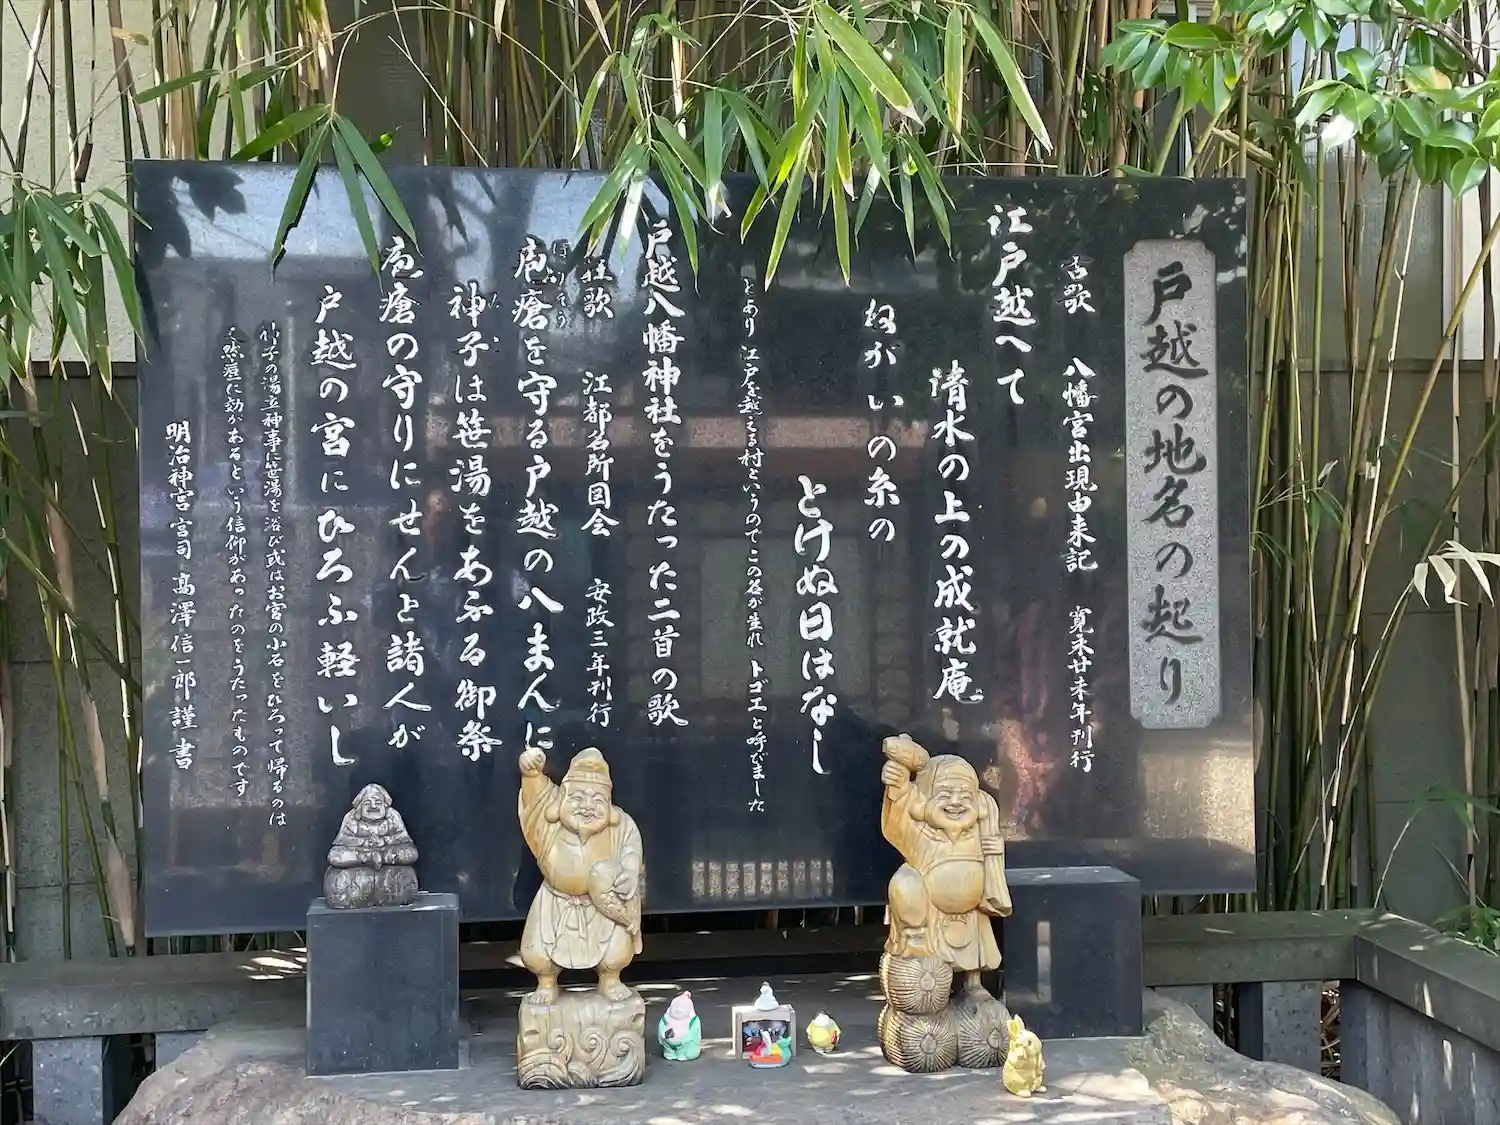 戸越の地名の起り
古歌 八幡宮出現由来記 寛永廿未年刊行
江戸越へて
清水の上の成就庵
ねがいの糸の
とけぬ日はなし
とあり 江戸を越える村というのでこの名が生れ トゴエと呼びました
戸越八幡神社をうたった二首の歌
狂歌 江都名所図会 安政三年刊行
疱瘡を守る戸越の八まんに
神子は笹湯をあふる御祭
疱瘡の守りにせんと諸人が
戸越の宮にひろふ軽いし
神子の湯立神事に笹湯を浴び或はお宮の小石をひろって帰るのは
天然痘に効があるという信仰があったのをうたったものです
明治神宮宮司 高澤信一郎 謹書